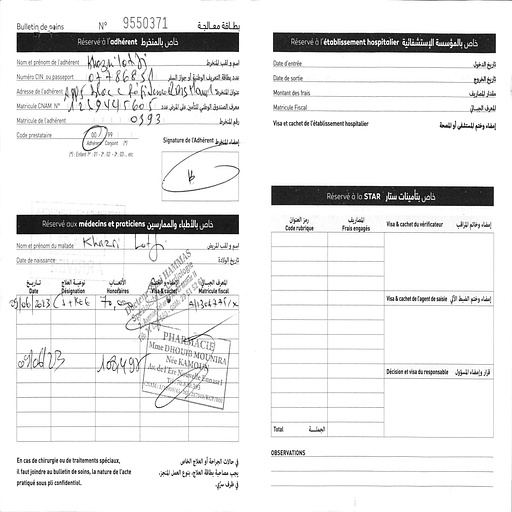 Bulletin de soins N° 9550371 بطاقة معالجة
Réservé à l'adhérent خاص بالمنخرط
Nom et prénom de l'adhérent Khazri lotfi إسم و لقب المنخرط
Numéro CIN ou passeport 07786851 عدد بطاقة التعريف الوطنية أو جواز السفر
Adresse de l'adhérent عنوان المنخرط
Matricule CNAM N° 1239445605 معرف الصندوق الوطني للتأمين على المرض عدد
Matricule de l'adhérent 0593 رقم المنخرط
Code prestataire 00 99
Adhérent Conjoint (*)
(*) : Enfant 1er : 01 - 2° : 02 - 3° : 03... etc
Signature de l'Adhérent إمضاء المنخرط
Réservé aux médecins et praticiens خاص بالأطباء والممارسين
Nom et prénom du malade Khazri Lotfi إسم و لقب المريض
Date de naissance تاريخ الولادة
تاريخ نوعية العلاج الأتعاب الإمضاء و الختم المعرف الجبائي
Date Désignation Honoraires Visa & cachet Matricule fiscal
09/06/2023
HAMMAS
09/06/23 108,498
PHARMACIE
Mme DHOUIB MOUNIRA
Née KAMOUN
En cas de chirurgie ou de traitements spéciaux,
il faut joindre au bulletin de soins, la nature de l'acte
pratiqué sous pli confidentiel.
في حالات الجراحة أو العلاج الخاص
يجب مصاحبة بطاقة العلاج، بنوع العمل المنجز،
في ظرف سري.
Réservé à l'établissement hospitalier خاص بالمؤسسة الإستشفائية
Date d'entrée تاريخ الدخول
Date de sortie تاريخ الخروج
Montant des frais مقدار المصاريف
Matricule Fiscal المعرف الجبائي
Visa et cachet de l'établissement hospitalier إمضاء وختم المستشفى أو المصحة
Réservé à la STAR خاص بتأمينات ستار
رمز العنوان المصاريف
Code rubrique Frais engagés
Visa & cachet du vérificateur إمضاء وخاتم المراقب
Visa & cachet de l'agent de saisie إمضاء وختم الضبط الآلي
Décision et visa du responsable قرار وإمضاء المسؤول
Total الجملة
OBSERVATIONS